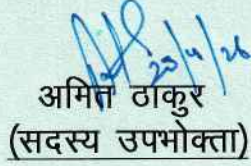 23/4/26
अमित ठाकुर
(सदस्य उपभोक्ता)